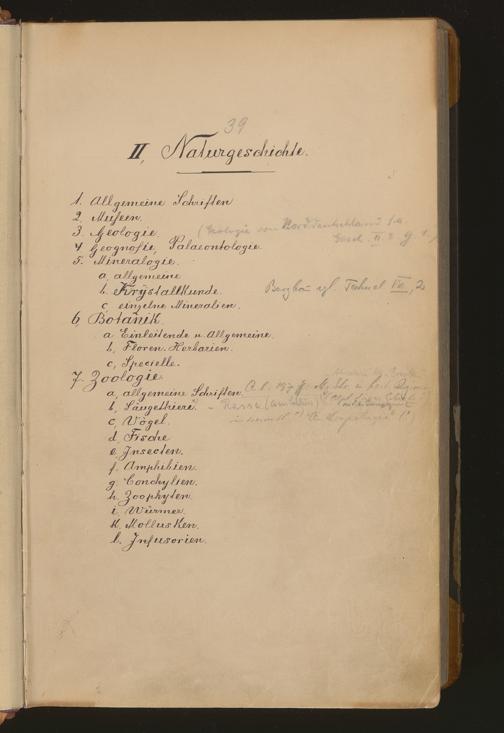 39
II, Naturgeschichte.
1. Allgemeine Schriften
2. Museen.
3. Geologie. (Geologie von Norddeutschland s. a.
4. Geognosie, Palaeontologie.
5. Mineralogie.
a, allgemeine
b. Krystallkunde. Bergbau vgl. Technol VII, 2
c, einzelne Mineralien.
6, Botanik.
a. Einleitende u. Allgemeine.
b, Floren. Herbarien.
c, Specielle.
7. Zoologie.
a, allgemeine Schriften.
b, Säugethiere.
c, Vögel.
d. Fische
e, Insecten.
f. Amphibien.
g. Conchylien.
h. Zoophyten.
i. Würmer.
k. Mollusken.
l. Infusorien.